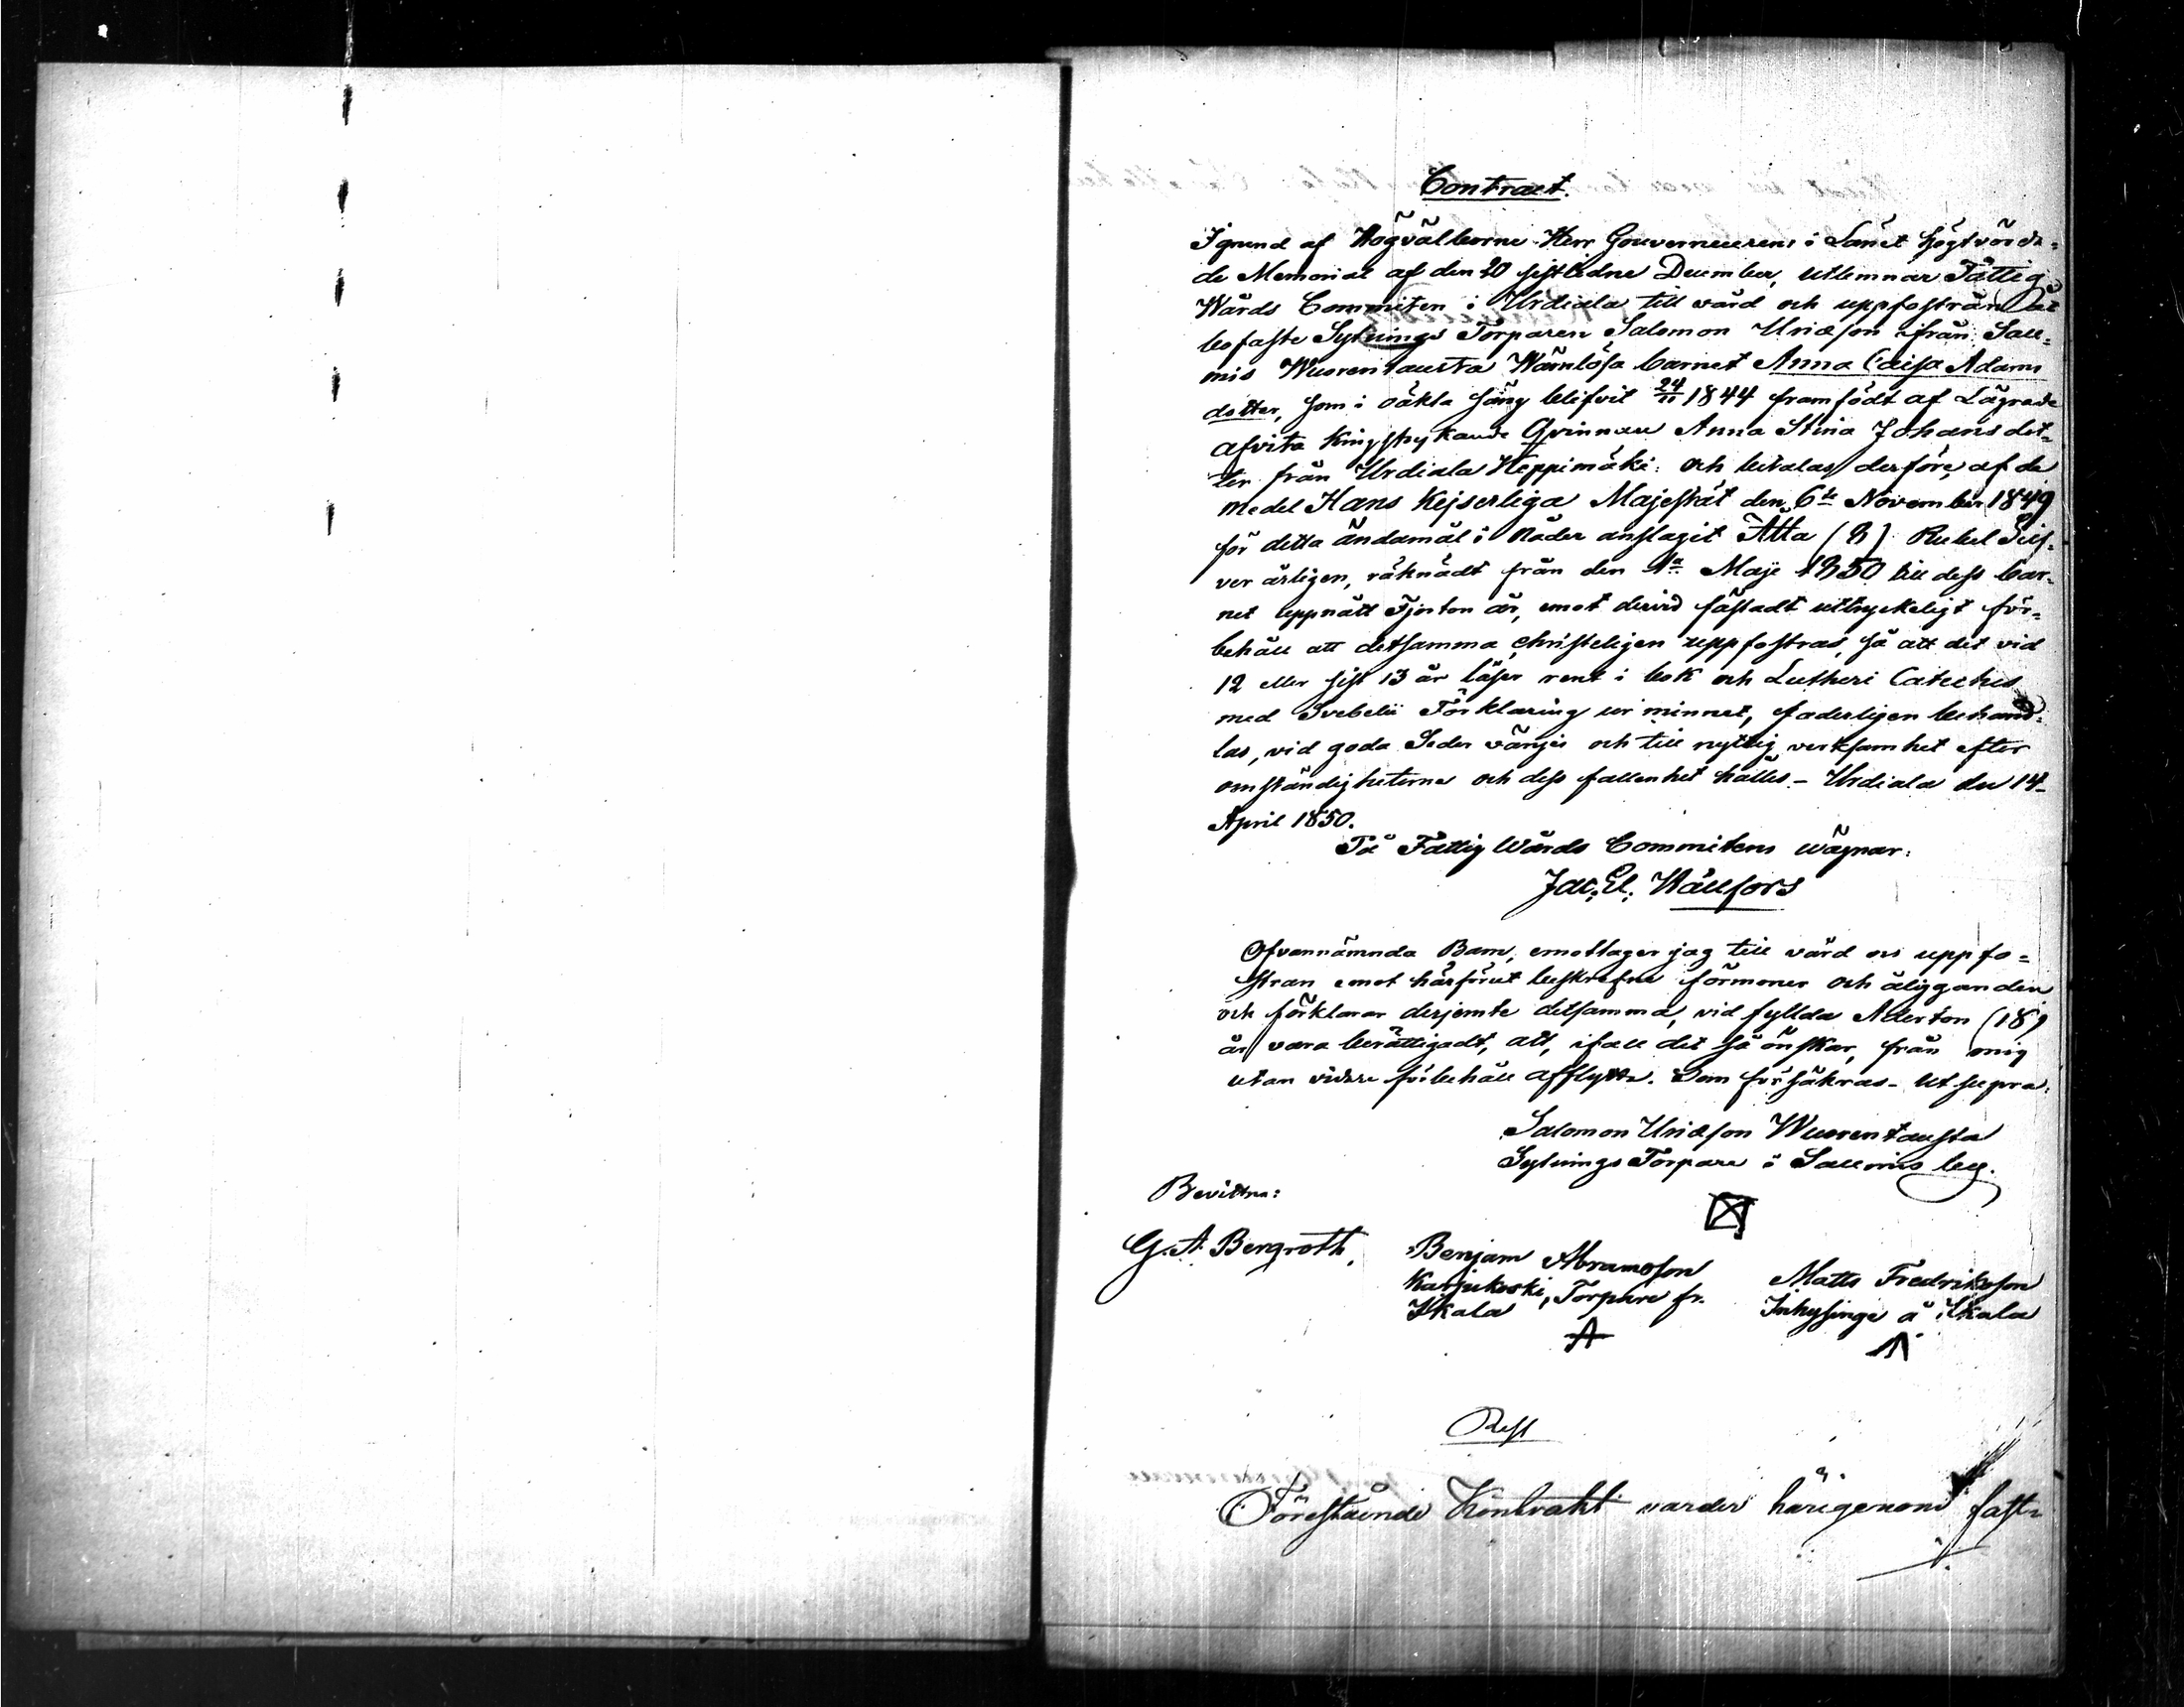 Contract.
I grund af Högvälborne Herr Gouverneurens i Länet högtvörda=
de Memorial af den 20 sistledne December, utlemnar Fattig
Wårds Committen i Urdiala till vård och uppfostran åt
bofaste Sytnings Torparen Salomon Uriæson från Sau=
mis Wuorentausta Wärnlösa barnet Anna Caisa Adams
dotter, som i oäkta säng blifvit 24/11 1844 framfödt af Lägrade
afvita kringstrykande Qvinnan Anna Stina Johansdot=
ter från Urdiala Heppimäki: och betalas derföre, af de
medel Hans Kejserliga Majestät den 6te November 1849
för detta ändamål i Nåder anslagit Åtta (8) Rubel Silf=
ver årligen, räknadt från den 1a Maji 1850 till dess bar=
net uppnått Fjorton år, emot dervid fästadt uttryckeligt för=
behåll att detsamma christeligen uppfostras, så att det vid
12 eller sist 13 år läser rent i bok och Lutheri Cateches
med Svebelii Förklaring ur minnet, faderligen behand=
las, vid goda Seder vänjes och till nyttig verksamhet efter
omständigheterna och dess fallenhet hålles. - Urdiala den 14
April 1850.
På Fattig Wårds Committens wägnar:
Jac: El: Hällfors
Ofvannämnda Barn, emottager jag till vård och uppfo=
stran emot härförut beskrefne förmoner och åligganden
och förklarar derjemte detsamma, vid fyllda Aderton (18)
år vara berättigadt, att, ifall det så önskar, från mig
utan vidare förbehåll afflytta. Som försäkras - Ut supra:
Salomon Uriæson Wuorentausta
Sytnings Torpare i Saumis by.
Bevittna:
G. A. Bergroth,
Benjam Abramsson
Karjukoski, Torpare fr.
Ikala
Matts Fredriksson
Inhysinge å Ikala
Res
Förestående Kontrakt varder härigenom fast=